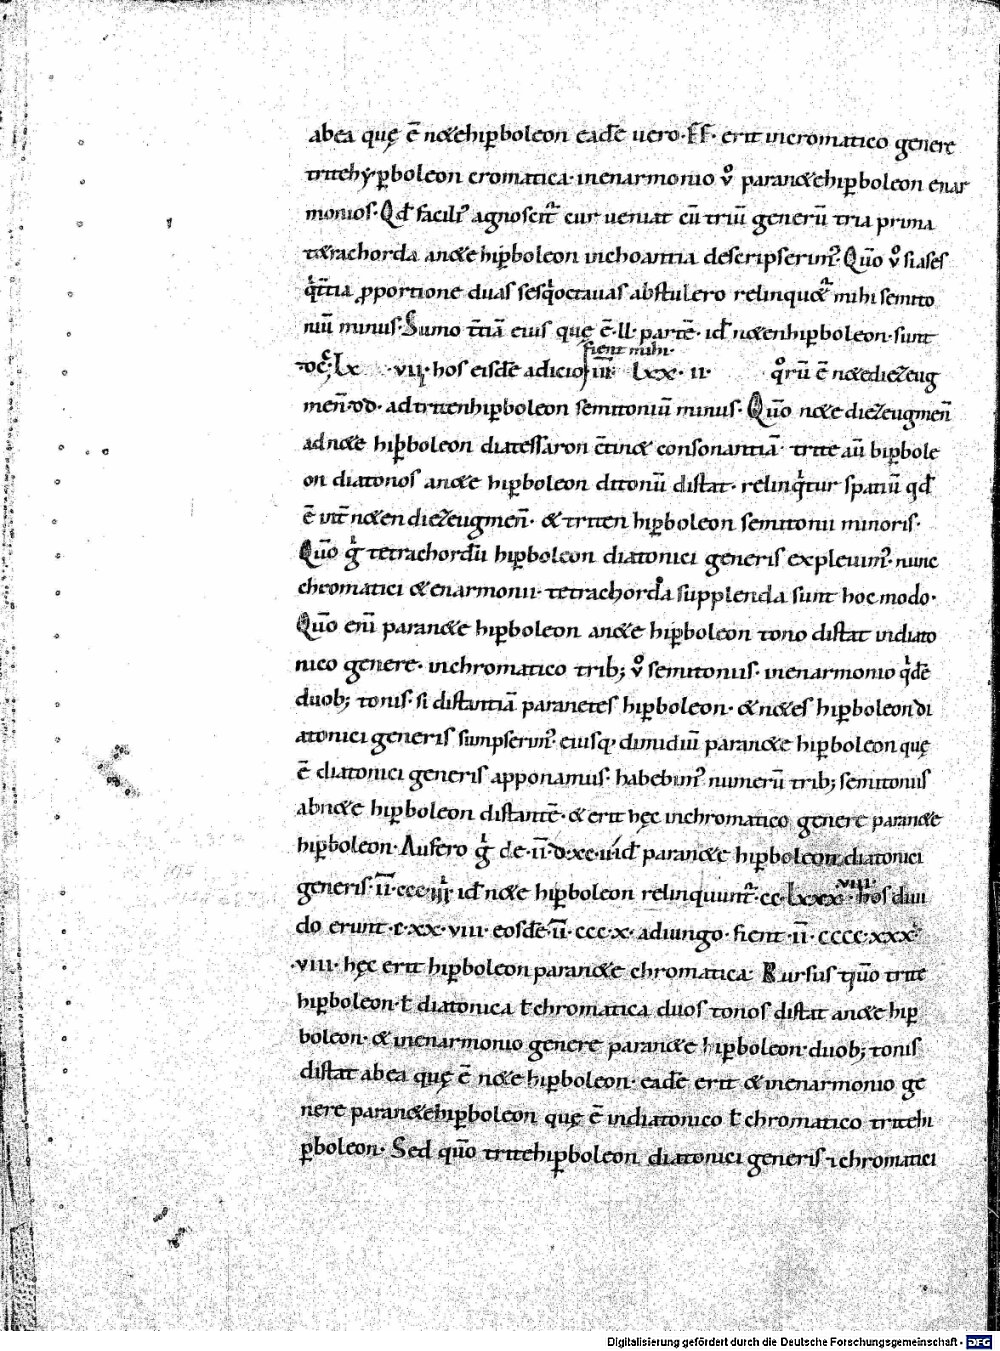 abea quę ē n&ehiꝑboleon eadē uero·FF· erit incromatico genere
tritehy·ꝑboleon cromatica· inenarmonio v̊ paran&ehiꝑboleon enar
monios· Qd̄ facili᷒ agnoscit᷑ cur ueniat cū triū generū tria prima
t&rachorda an&e hiꝑboleon inchoantia descripserim᷒· Quō v̊ siases
ꝓportione duas abstulero mihi semito
niū minus· Sumo t̄tiā eius quę ē·ll·partē· id̄ n&enhiꝑboleon· sunt
fient mihi·
·vii· hos eisdē adicio lxx·ii· q̊rū ē n&ediezeug
men̄·dd· adtritenhiꝑboleon semitoniū minus· Quō n&e diezeugmen̄
adn&e hiꝑboleon diatessaron c̄tin& consonantiā· trite aū hiꝑbole
on diatonos an&e hiꝑboleon ditonū distat· relinqͥtur spatiū qd̄
ē int̄ n&en diezeugmen̄· & triten hiꝑboleon semitonii minoris·
Quō gͥ tetrachordū hiꝑboleon diatonici generis expleuim᷒· nunc
chromatici & enarmonii· tetrachorda supplenda sunt hoc modo·
Quō eni paran&e hiꝑboleon an&e hiꝑboleon tono distat indiato
nico genere· inchromatico trib; v̊ semitoniis· inenarmonio qͥdē
duob; tonis· si distantiā paranetes hiꝑboleon· & n&es hiꝑboleon di
atonici generis sumpserim᷒· eiusq· dimidiū paran&e hiꝑboleon quę
ē diatonici generis apponamus· habebim᷒ numerū trib; semitoniis
abn&e hiꝑboleon distantē· & erit hęc inchromatico genere paran&e
hiꝑboleon· Aufero gͥ de·ii·d·xc·ii id̄ paran&e hiꝑboleon diatonici
viii·
generis·ii·ccc·iiii id̄ n&e hiꝑboleon relinquunt᷑·cc·lxxx· hos diui
do erunt·c·xx·viii· eosdē·ii·ccc·x· adiungo· fient·ii·cccc·xxx·
·viii· hęc erit hiꝑboleon paran&e chromatica· Rursus quō trite
hiꝑboleon·ł diatonica ł chromatica duos tonos distat an&e hiꝑ
boleon· & inenarmonio genere paran&e hiꝑboleon· duob; tonis
distat abea quę ē n&e hiꝑboleon· eadē erit & inenarmonio ge
nere paran&ehiꝑboleon quę ē indiatonico ł chromatico tritehi
ꝑboleon· Sed quō tritehiꝑboleon diatonici generis ⁊chromatici
Digitalisierung gefördert durch die Deutsche Forschungsgemeinschaft - DFG